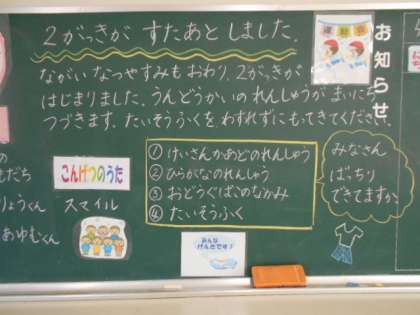 2がっきが すたあとしました.
お知らせ
運動会
ながい なつやすみも おわり、2がっきが
はじまりました。うんどうかいの れんしゅうが まいにち
つづきます。たいそうふくを、わすれずにもってきてください。
①けいさんかあどのれんしゅう
②ひらがなのれんしゅう
③おどうぐばこのなかみ
④たいそうふく
みなさん
ばっちり
できてますか
こんげつのうた
スマイル
の
もだち
りょうくん
あゆむくん
みんな
げんきです♪